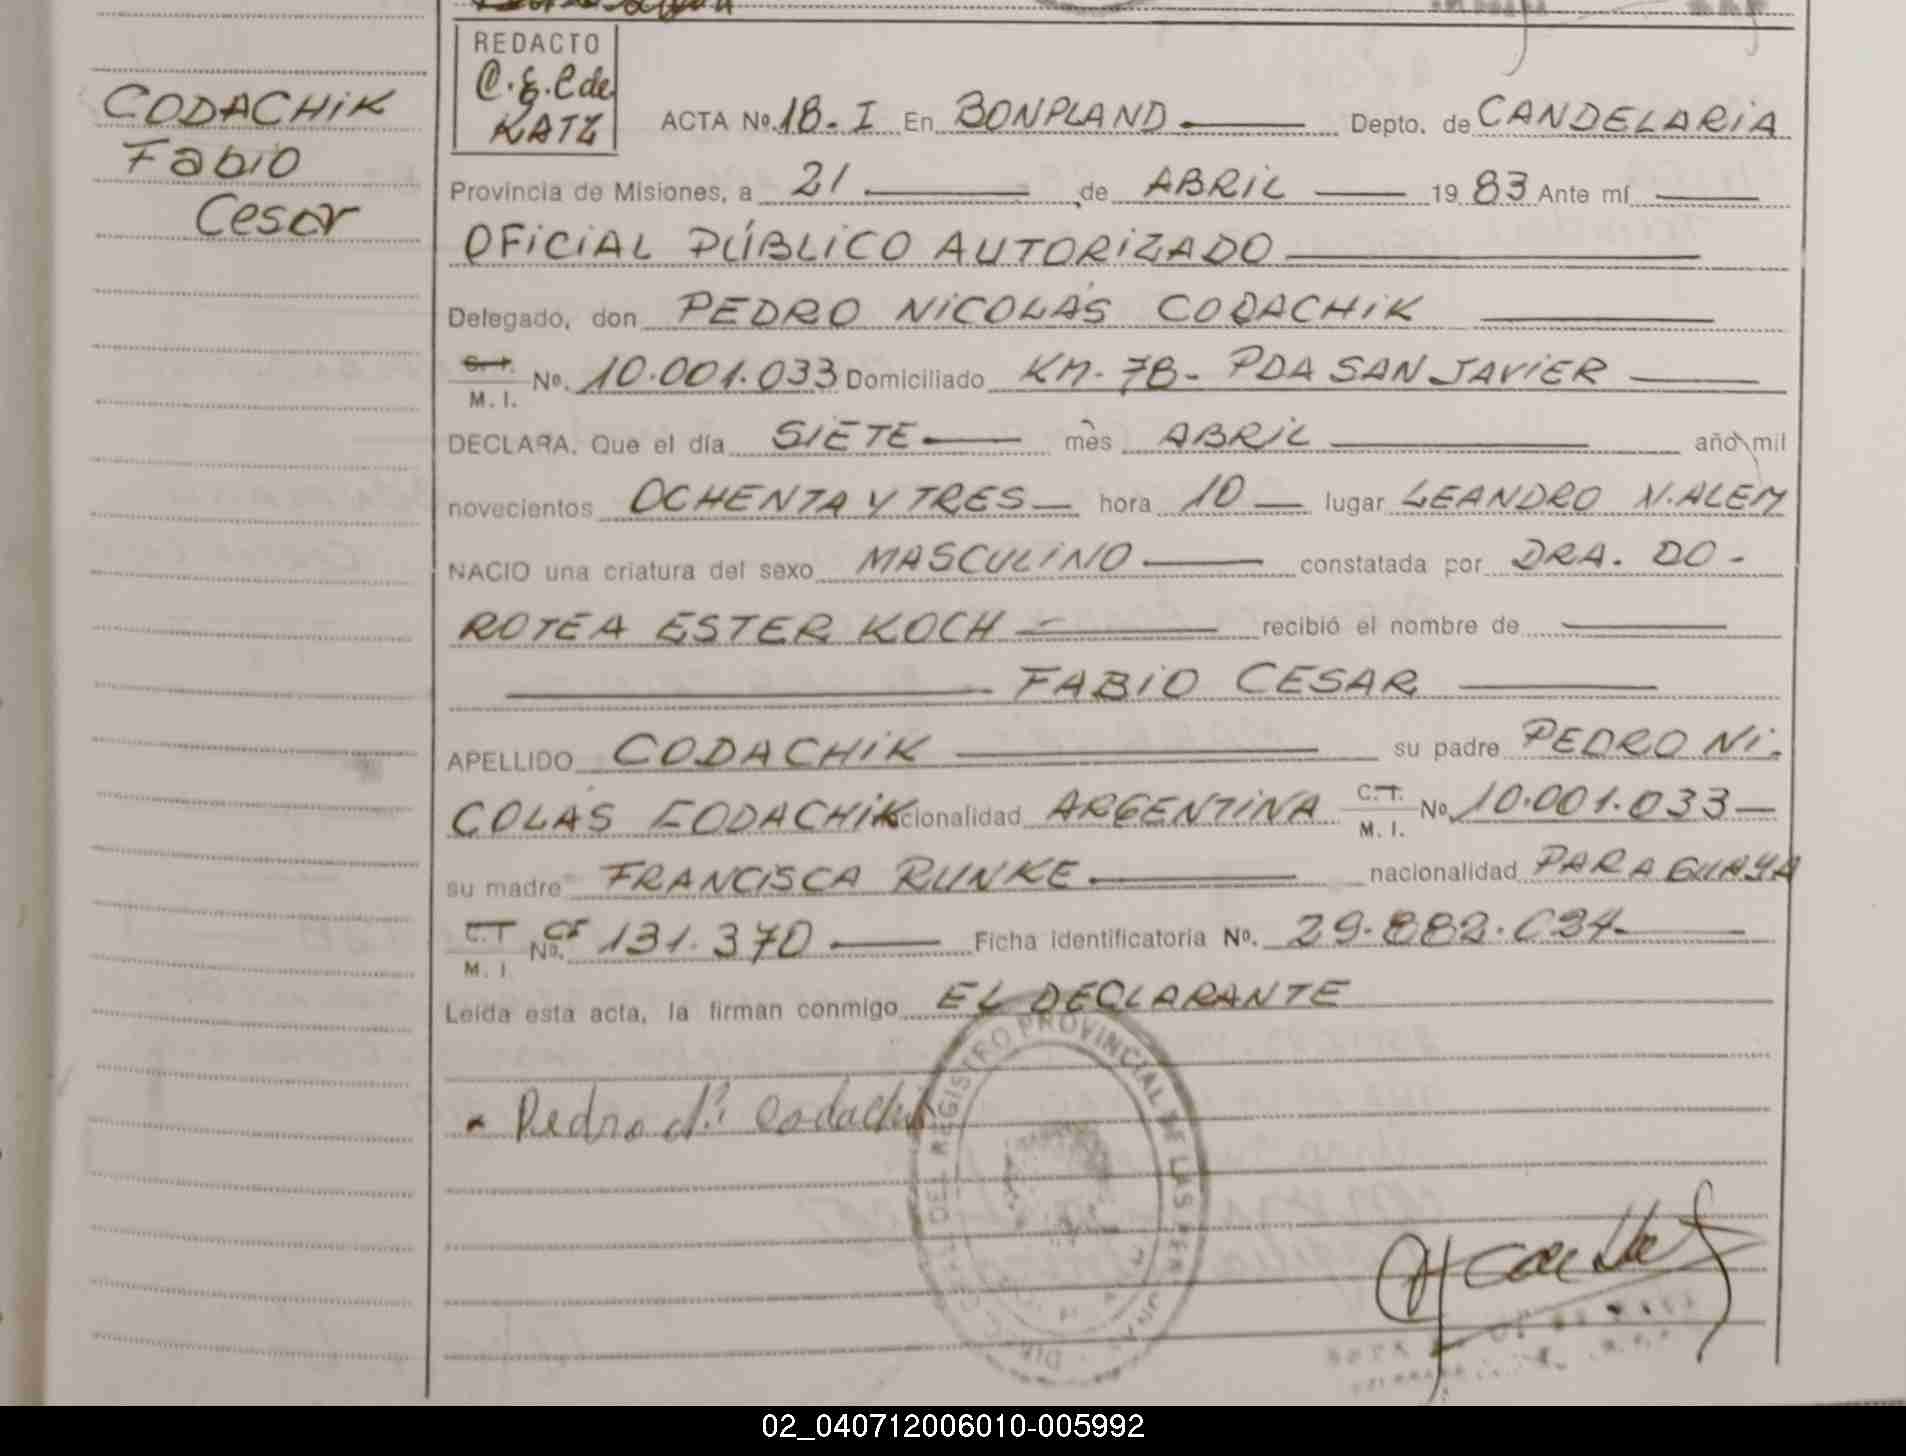 CODACHIK
Fabio
Cesar
REDACTO
C. E. C de
KATZ
ACTA Nº 18-I En BONPLAND Depto. de CANDELARIA
Provincia de Misiones, a 21 de ABRIL 1983 Ante mí
OFICIAL PÚBLICO AUTORIZADO
Delegado, don PEDRO NICOLÁS CODACHIK
C.I. M. I. Nº. 10.001.033 Domiciliado KM-78- PDA SAN JAVIER
DECLARA. Que el día SIETE mes ABRIL año mil
novecientos OCHENTA Y TRES hora 10 lugar LEANDRO N. ALEM
NACIO una criatura del sexo MASCULINO constatada por DRA. DO-
ROTEA ESTER KOCH recibió el nombre de
FABIO CESAR
APELLIDO CODACHIK su padre PEDRO NI-
COLÁS CODACHIK cionalidad ARGENTINA C.I. M. I. Nº 10.001.033
su madre FRANCISCA RUNKE nacionalidad PARAGUAYA
C.I M. I Nº. CF 131.370 Ficha identificatoria Nº. 29.882.034
Leída esta acta, la firman conmigo EL DECLARANTE
Pedro Codachik
DEL REGISTRO PROVINCIAL DE LAS PERSONAS
02_040712006010-005992